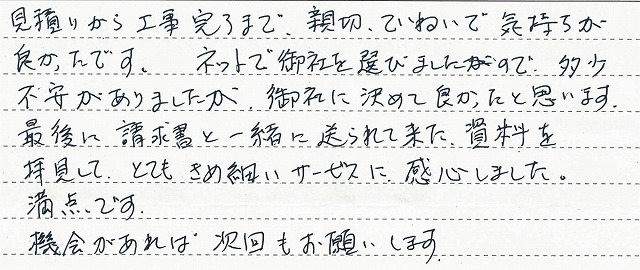 見積りから工事完了まで、親切、ていねいで気持ちが
良かったです。 ネットで御社を選びましたがので、多少
不安がありましたが、御社に決めて良かったと思います。
最後に請求書と一緒に送られて来た、資料を
拝見して、とてもきめ細いサービスに、感心しました。
満点です。
機会があれば次回もお願いします。